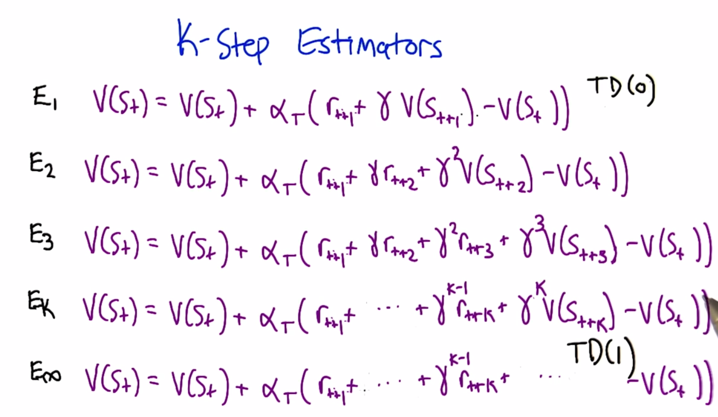 K-Step Estimators
E₁ V(Sₜ) = V(Sₜ) + α_T (rₜ₊₁ + γ V(Sₜ₊₁) - V(Sₜ)) TD(0)
E₂ V(Sₜ) = V(Sₜ) + α_T (rₜ₊₁ + γ rₜ₊₂ + γ² V(Sₜ₊₂) - V(Sₜ))
E₃ V(Sₜ) = V(Sₜ) + α_T (rₜ₊₁ + γ rₜ₊₂ + γ² rₜ₊₃ + γ³ V(Sₜ₊₃) - V(Sₜ))
E_K V(Sₜ) = V(Sₜ) + α_T (rₜ₊₁ + ⋯ + γ^{K-1} r_{t+K} + γ^K V(S_{t+K}) - V(Sₜ))
E∞ V(Sₜ) = V(Sₜ) + α_T (rₜ₊₁ + ⋯ + γ^{K-1} r_{t+K} + ⋯ - V(Sₜ)) TD(1)